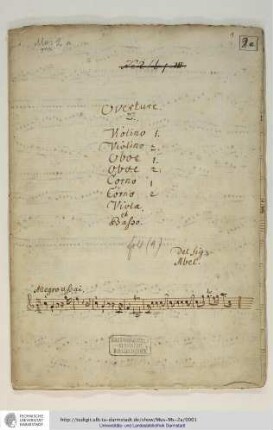 Mus 2 a
2a
Overture.
Violino 1.
Violino 2.
Oboe 1.
Oboe 2.
Corno 1
Corno 2
Viola.
et
Basso.
Del Sigr
Abel.
Allegro assai.
http://tudigit.ulb.tu-darmstadt.de/show/Mus-Ms-2a/0001
Universitäts- und Landesbibliothek Darmstadt